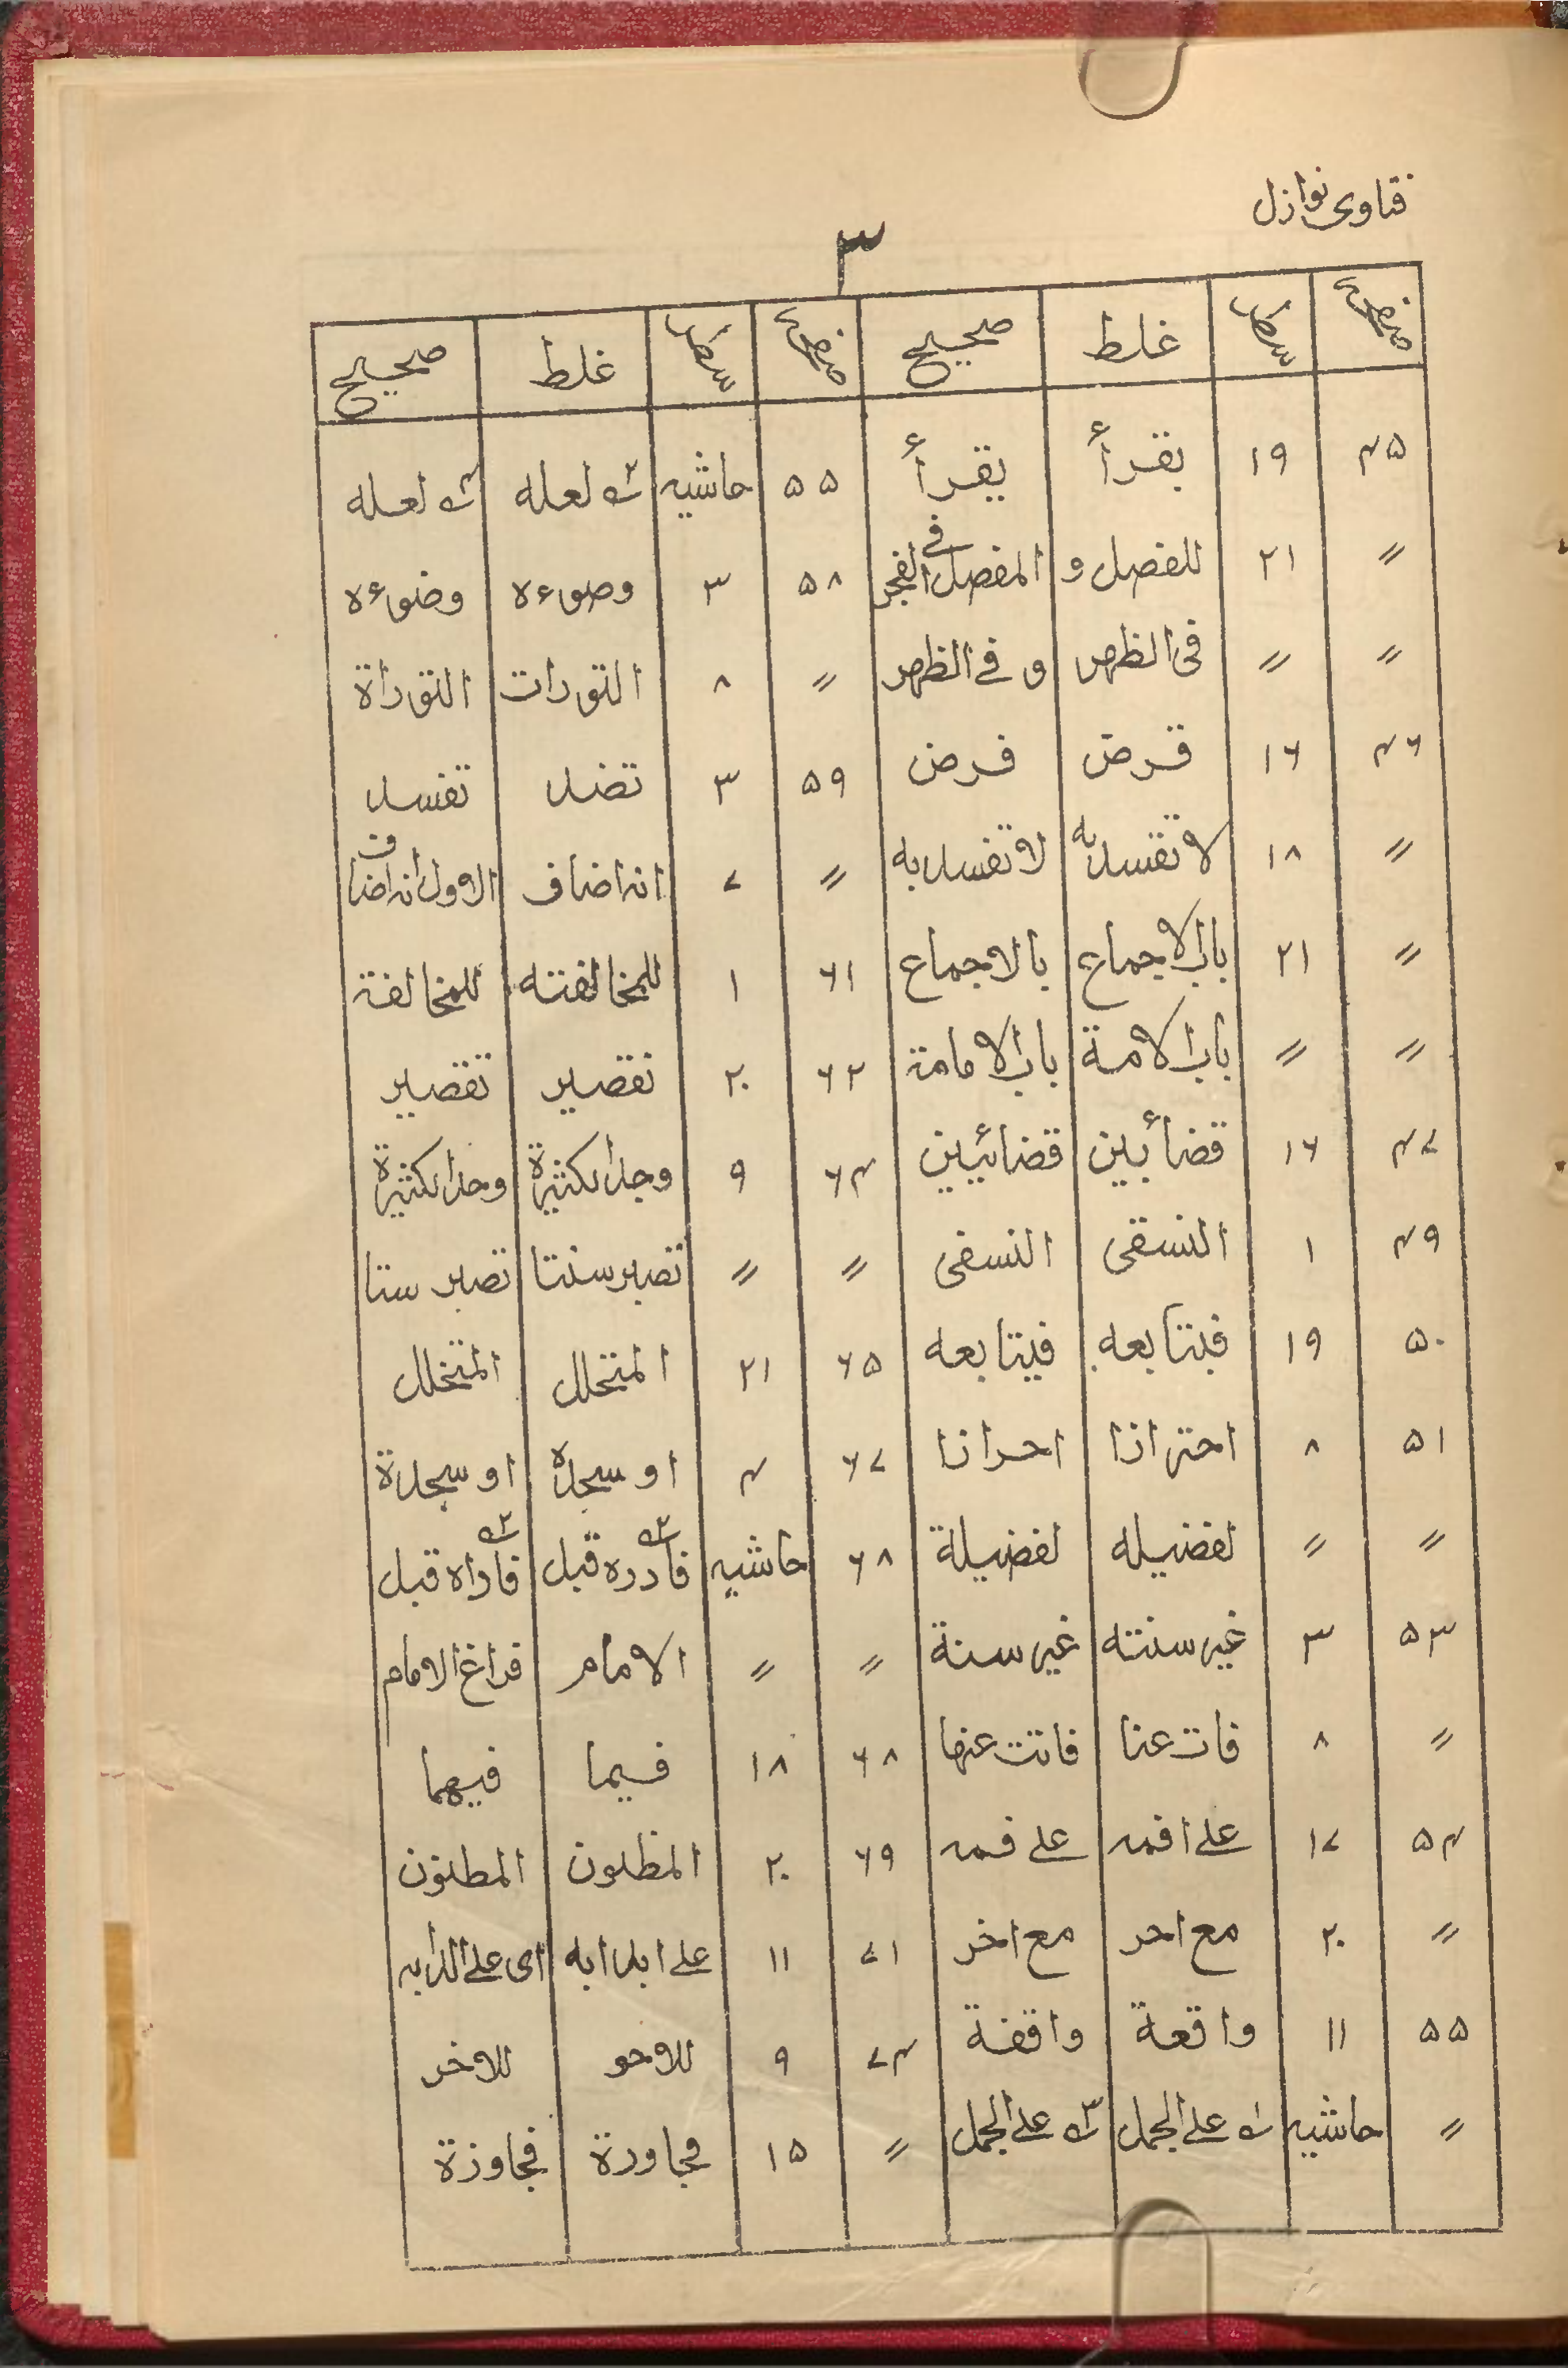 فتاوى نوازل
۳
صفحہ سطر غلط صحیح صفحہ سطر غلط صحیح
۴۵ ۱۹ بقرأ یقرأ ۵۵ حاشیہ لعله لعله
〃 ۲۱ للفصل و المفصل فی الفجر ۵۸ ۳ وصوءه وضوءه
〃 〃 فی الظهر و فی الظهر 〃 ۸ التورات التوراة
۴۶ ۱۶ قرض فرض ۵۹ ۳ تضد تفسد
〃 ۱۸ لا تقسد به لا تفسد به 〃 ۷ انه اضاف الاول انه اضاف
〃 ۲۱ باب الاجماع بالاجماع ۶۱ ۱ للمخالفته للمخالفة
〃 〃 باب الامة باب الامامة ۶۲ ۲۰ نقصیر تقصیر
۴۷ ۱۶ قضأیین قضائیین ۶۴ ۹ وجد الکثیرة وحد الکثیرة
۴۹ ۱ النسقی النسفی 〃 〃 تصیر سنتا تصیر ستا
۵۰ ۱۹ فبتابعه فیتابعه ۶۵ ۲۱ المتخلل المتخلل
۵۱ ۸ احترازا احرازا ۶۷ ۴ او سجدہ او سجدة
〃 〃 لفضیله لفضیلة ۶۸ حاشیہ فادره قبل فاراه قبل
۵۳ ۳ غیر سنته غیر سنة 〃 〃 الامام فراغ الامام
〃 ۸ فات عنا فاتت عنها ۶۸ ۱۸ فیما فیهما
۵۴ ۱۷ علے افمه علے فمه ۶۹ ۲۰ المظلون المظنون
〃 ۲۰ مع احر مع اخر ۷۱ ۱۱ علے ابدابه ای علے الدابه
۵۵ ۱۱ واقعة واقفة ۷۴ ۹ للاحو للاخر
〃 حاشیہ علے الجمل علے الجمل 〃 ۱۵ مجاورة مجاوزة